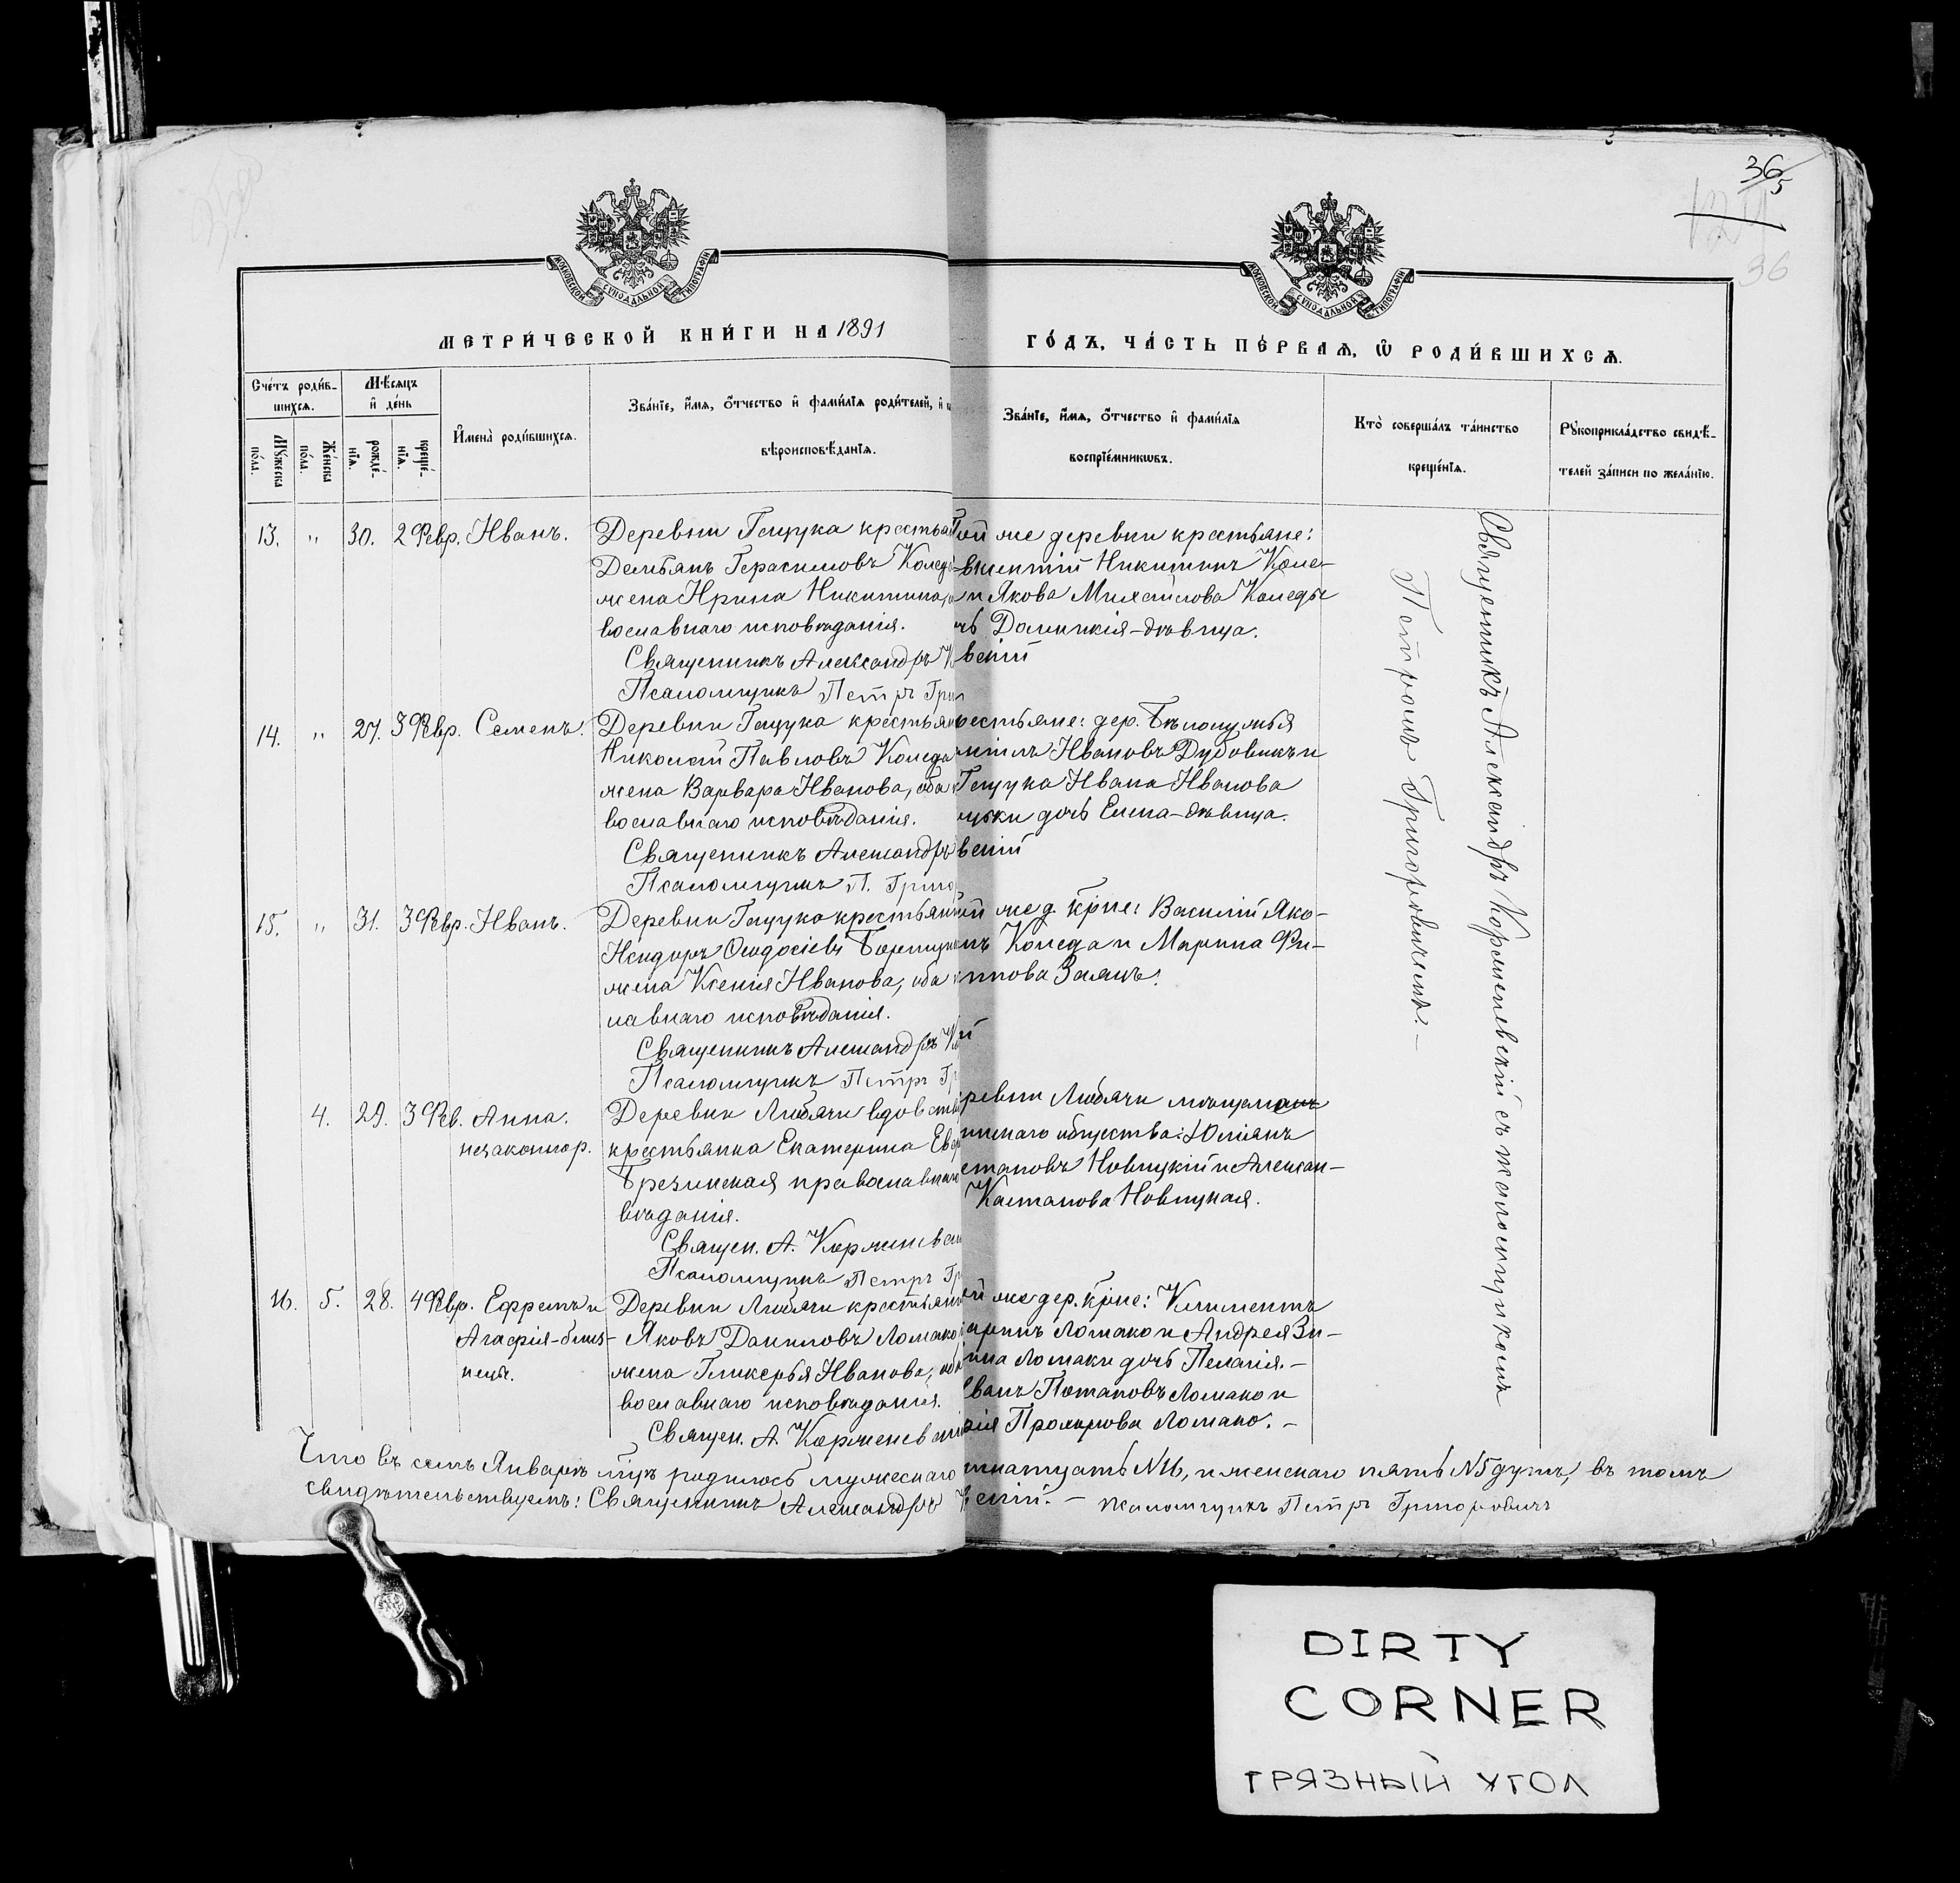 36
5
36
МОСКОВСКОЙ СѴНОДАЛЬНОЙ ТИПОГРАФІИ
МОСКОВСКОЙ СѴНОДАЛЬНОЙ ТИПОГРАФІИ
МЕТРИ́ЧЕСКОЙ КНИ́ГИ НА 1891
ГО́ДЪ, ЧА́СТЬ ПЕ́РВАЯ, Ѡ РОДИ́ВШИХСЯ.
Сче́тъ роди́в-
шихся.
Мѣ́сяцъ
и де́нь
Мꙋжеска
по́ла.
Же́нска
по́ла.
рожде́-
нїя.
креще́-
нїя.
Имена̀ роди́вшихся.
Зва́нїе, и́мя, о́тчество и фами́лїя роди́телей, и
вѣроисповѣ́данїя.
Зва́нїе, и́мя, о́тчество и фами́лїя
воспрїе́мникѡвъ.
Кто̀ соверша́лъ та́инство
креще́нїя.
Рꙋкоприкла́дство свидѣ́-
телей за́писи по жела́нїю.
13. " 30. 2 Февр. Иванъ.
Деревни Гощука крестья
Демьянъ Герасимовъ Колед
жена Ирина Никитина,
вославнаго исповѣданія.
Священникъ Александръ
Псаломщикъ Петръ Гри
той же деревни крестьяне:
Никитинъ Коле-
и Якова Михайлова Коледы
Домникія-дѣвица.
вскій
14. " 27. 3 Февр. Семенъ.
Деревни Гощука крестьян
Николай Павловъ Коледа
жена Варвара Иванова, оба
вославнаго исповѣданія.
Священникъ Александръ
Псаломщикъ П. Григо
рестьяне: дер.
Ивановъ Дубовикъ и
Гощука Ивана Иванова
дочь Елена-дѣвица.
вскій
15. " 31. 3 Февр. Иванъ.
Деревни Гощука крестьян
Исидоръ Ѳеодосіевъ
жена Ксенія Иванова, оба
лавнаго исповѣданія.
Священникъ Александръ
Псаломщикъ Петръ Гр
же д. кр҃не: Василій Яко-
Коледа и Марина Фи-
ппова
й
4. 29. 3 Фев. Анна.
незаконнор.
Деревни Любячи вдова
крестьянка Екатерина
Брезинская православна
вѣданія.
Священ. А. Корженевск
Псаломщикъ Петръ Гр
ревни Любячи мѣщане
общества: Юліянъ
Новицкій и Алексан-
Новицкая.
16. 5. 28. 4 Февр. Ефремъ и
Агафія-близ-
нецы.
Деревни Любячи крестьян
Яковъ Даниловъ Ломако
жена Гликерья Иванова, оба
вославнаго исповѣданія.
Священ. А. Корженевскі
же дер. кр҃не: Климентъ
Ломако и Андрея Зи-
Ломаки дочь Пелагія.-
Иванъ Потаповъ Ломако и
Прохорова Ломако.-
Священникъ Александръ Корженевскій съ псаломщикомъ
Петромъ Григоровичемъ.-
Что въ семъ Январѣ м҃цѣ родилось мужескаго
шнатцать №16, и женскаго пять №5 душъ, въ томъ
свидѣтельствуемъ: Священникъ Александръ
вскій.- Псаломщикъ Петръ Григоровичъ
DIRTY
CORNER
ГРЯЗНЫЙ УГОЛ